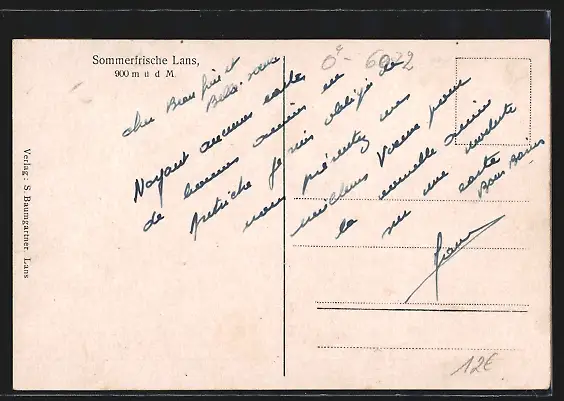 Sommerfrische Lans,
900 m ü d M.
Verlag: S. Baumgartner Lans
Ö - 6072
cher Beau frère et
Belle-sœur
N'ayant aucunes cartes
de bonnes années en
Autriche je suis obligé de
vous présentez mes
meilleurs Vœux pour
la nouvelle année
sur une modeste
carte
Bons Baisers
12€